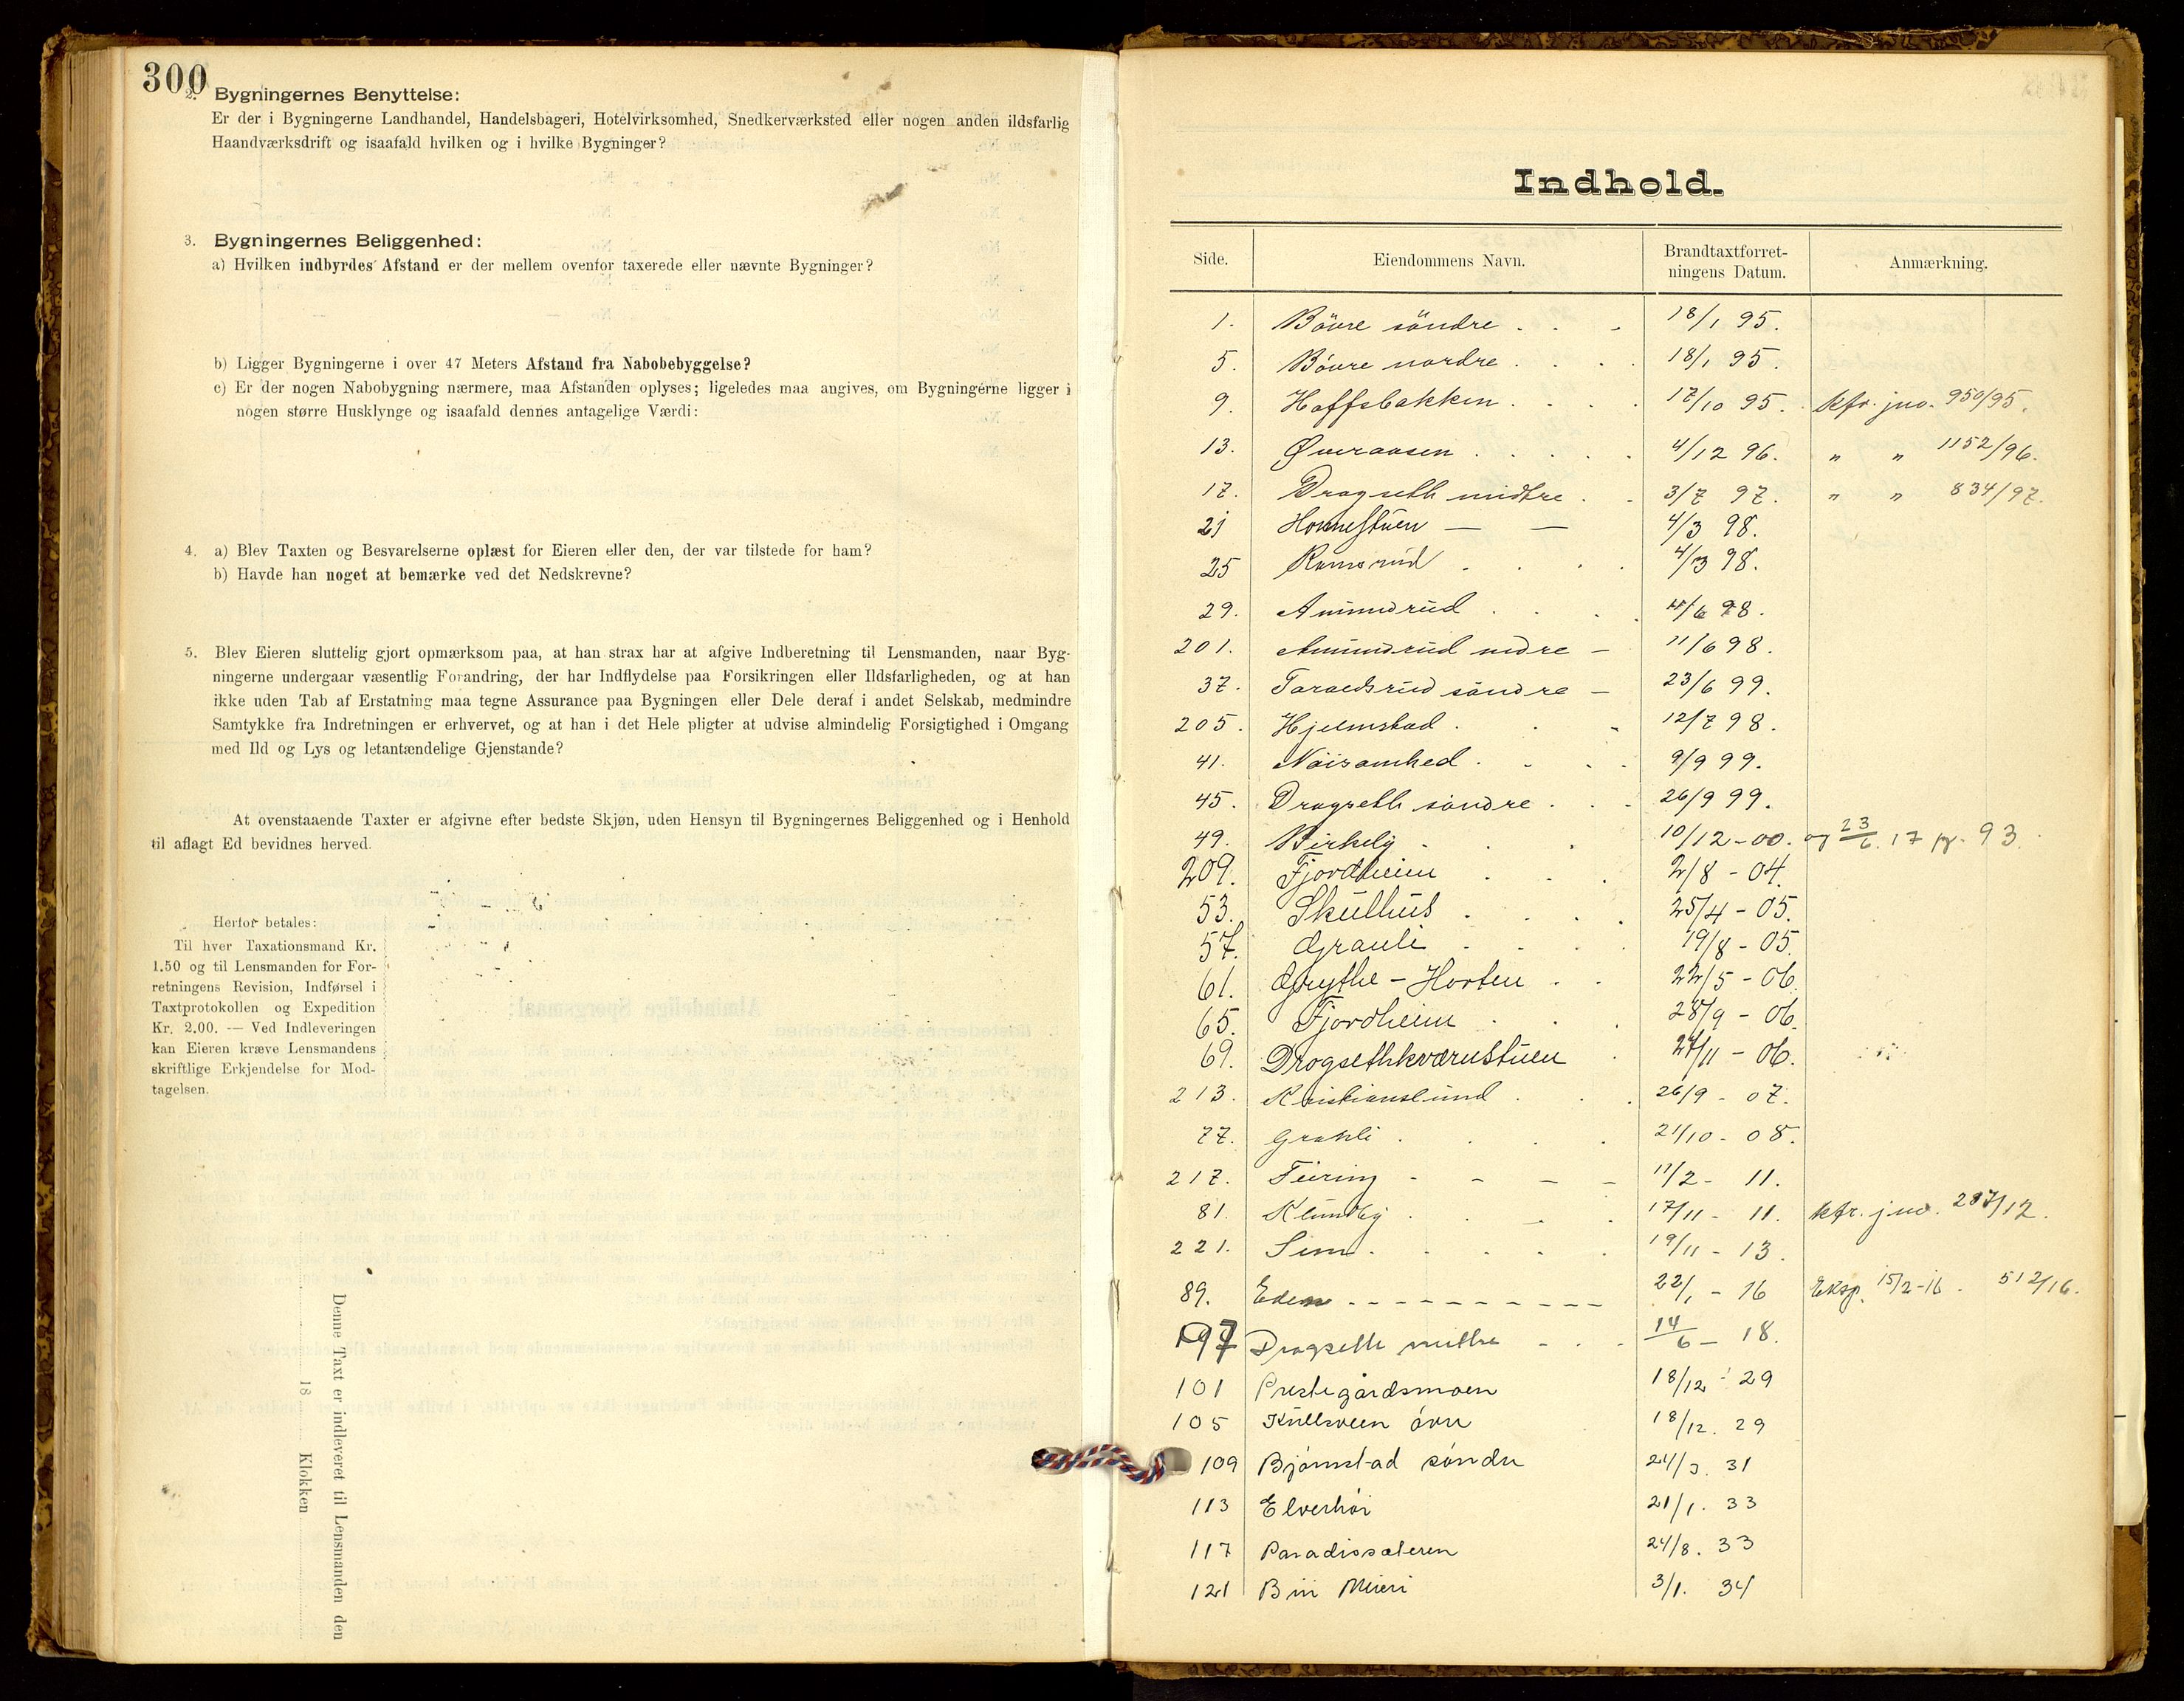 300
2. Bygningernes Benyttelse:
Er der i Bygningerne Landhandel, Handelsbageri, Hotelvirksomhed, Snedkerværksted eller nogen anden ildsfarlig
Haandværksdrift og isaafald hvilken og i hvilke Bygninger?
3. Bygningernes Beliggenhed:
a) Hvilken indbyrdes Afstand er der mellem ovenfor taxerede eller nævnte Bygninger?
b) Ligger Bygningerne i over 47 Meters Afstand fra Nabobebyggelse?
c) Er der nogen Nabobygning nærmere, maa Afstanden oplyses; ligeledes maa angives, om Bygningerne ligger i
nogen større Husklynge og isaafald dennes antagelige Værdi:
4. a) Blev Taxten og Besvarelserne oplæst for Eieren eller den, der var tilstede for ham?
b) Havde han noget at bemærke ved det Nedskrevne?
5. Blev Eieren sluttelig gjort opmærksom paa, at han strax har at afgive Indberetning til Lensmanden, naar Byg-
ningerne undergaar væsentlig Forandring, der har Indflydelse paa Forsikringen eller Ildsfarligheden, og at han
ikke uden Tab af Erstatning maa tegne Assurance paa Bygningen eller Dele deraf i andet Selskab, medmindre
Samtykke fra Indretningen er erhvervet, og at han i det Hele pligter at udvise almindelig Forsigtighed i Omgang
med Ild og Lys og letantændelige Gjenstande?
At ovenstaaende Taxter er afgivne efter bedste Skjøn, uden Hensyn til Bygningernes Beliggenhed og i Henhold
til aflagt Ed bevidnes herved.
Herfor betales:
Til hver Taxationsmand Kr.
1.50 og til Lensmanden for For-
retningens Revision, Indførsel i
Taxtprotokollen og Expedition
Kr. 2.00. — Ved Indleveringen
kan Eieren kræve Lensmandens
skriftlige Erkjendelse for Mod-
tagelsen.
Denne Taxt er indleveret til Lensmanden den
18 Klokken
Indhold.
Side. Eiendommens Navn. Brandtaxtforret-ningens Datum. Anmærkning.
1. Bövre söndre . . . 18/1 95.
5. Bövre nordre . . . . 18/1 95.
9. Hoffsbakken . . . . 17/10 95. Kfr. jno. 950/95.
13. Øveraasen . . . . . 4/12 96. " " 1152/96.
17. Dragseth midtre . . 3/7 97. " " 834/97.
21 Hornestuen — — 4/3 98.
25 Ramsrud . . . . 4/3 98.
29. Amundrud . . . . 4/6 98.
201. Amundrud nedre – 11/6 98.
37. söndre – 23/6 99.
205. Hjelmstad . . . 12/7 98.
41. Nöisomhed . . . . 9/9 99.
45. Dragseth söndre . . . 26/9 99.
49. Birkely . . . 10/12-00. og 23/6. 17 pg. 93.
209. Fjordheim . . . 2/8 - 04.
53. Skulhus . . . . 25/4 - 05.
57. Grauli . . . . 19/8 - 05.
61. Grythe - Horten . . 22/5 - 06.
65. Fjordheim . . . 28/9 - 06.
69. Dragsethkværnstuen . 27/11 - 06.
213. Kristianslund . . . 26/9 - 07.
77. Grahli . . . . 21/10 - 08.
217. Feiring - - - - 11/2 - 11.
81. Klundby . . . . 17/11 - 11. Kfr. jno. 287/12.
221. Sem . . . . . 19/11 - 13.
89. Eden - - - - - - - - - - 22/1 - 16 Eksp. 15/2-16. 512/16.
97 Dragseth midtre - . . 14/6 - 18.
101 Prestegårdsmoen 18/12 - 29
105 Kullsveen övre 18/12. 29
109 Bjørnstad søndre 24/3. 31
113 Elverhöi 21/1. 33
117 Paradissæteren 24/8. 33
121 Biri Meieri 3/1. 34